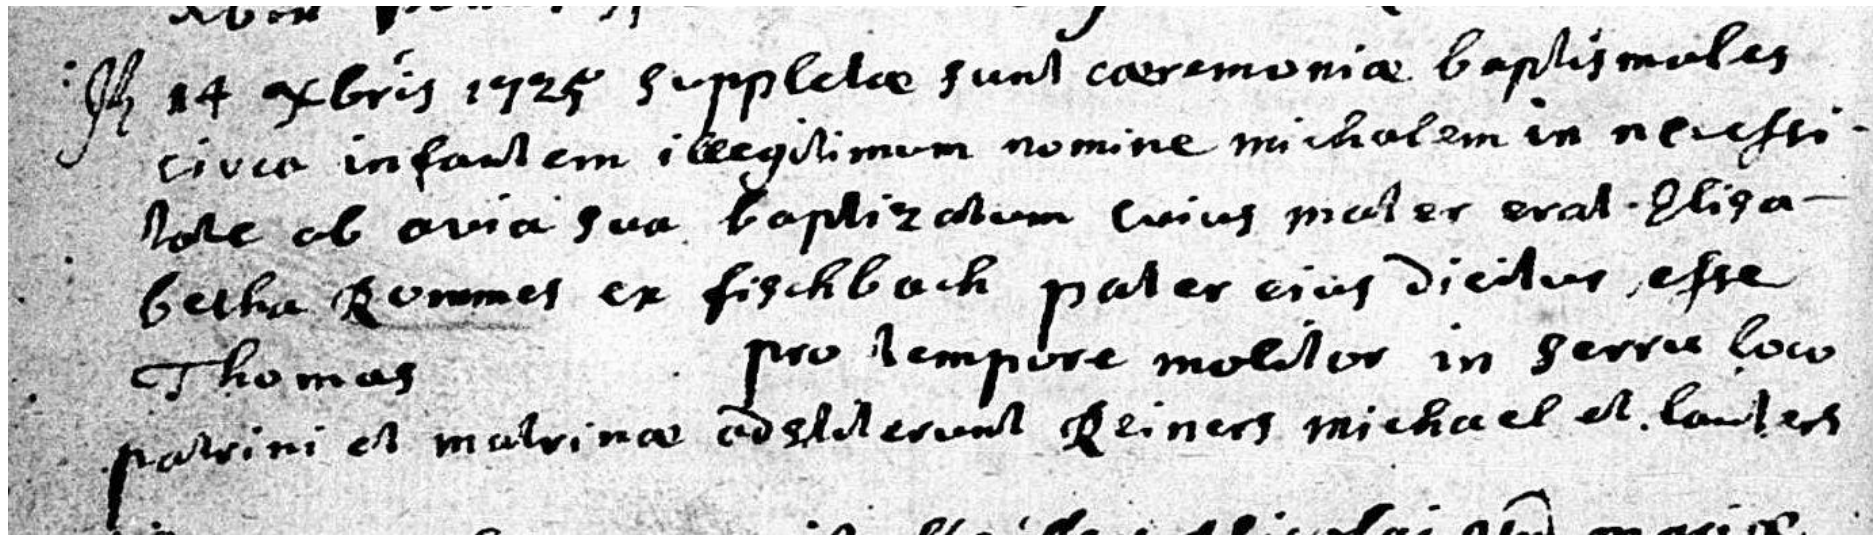 14 Xbris 1725 suppletae sunt caeremoniae baptismales
circa infantem illegitimum nomine michalem in necessi-
tate ab avia sua baptizatum cuius mater erat Elisa-
betha Rommes ex fischbach pater eius dicitur esse
Thomas pro tempore molitor in serru loco
patrini et matrinae adstiterunt Reiners michael et lauters